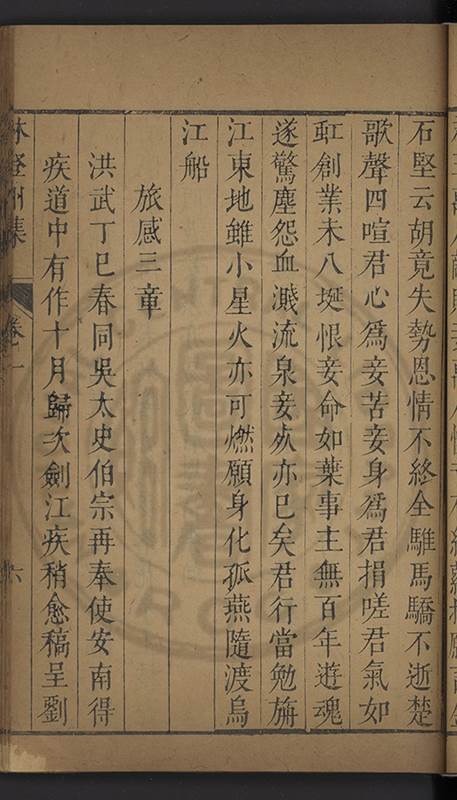 石堅云胡竟失勢恩情不終全騅馬驕不逝楚
歌聲四喧君心爲妾苦妾身爲君捐嗟君氣如
虹創業未八埏恨妾命如葉事主無百年遊魂
遂驚塵怨血濺流泉妾死亦已矣君行當勉旃
江東地雖小星火亦可燃願身化孤燕隨渡烏
江船
旅感三章
洪武丁巳春同吳太史伯宗再奉使安南得
疾道中有作十月歸次劍江疾稍愈稿呈劉
林登州集 卷一 六